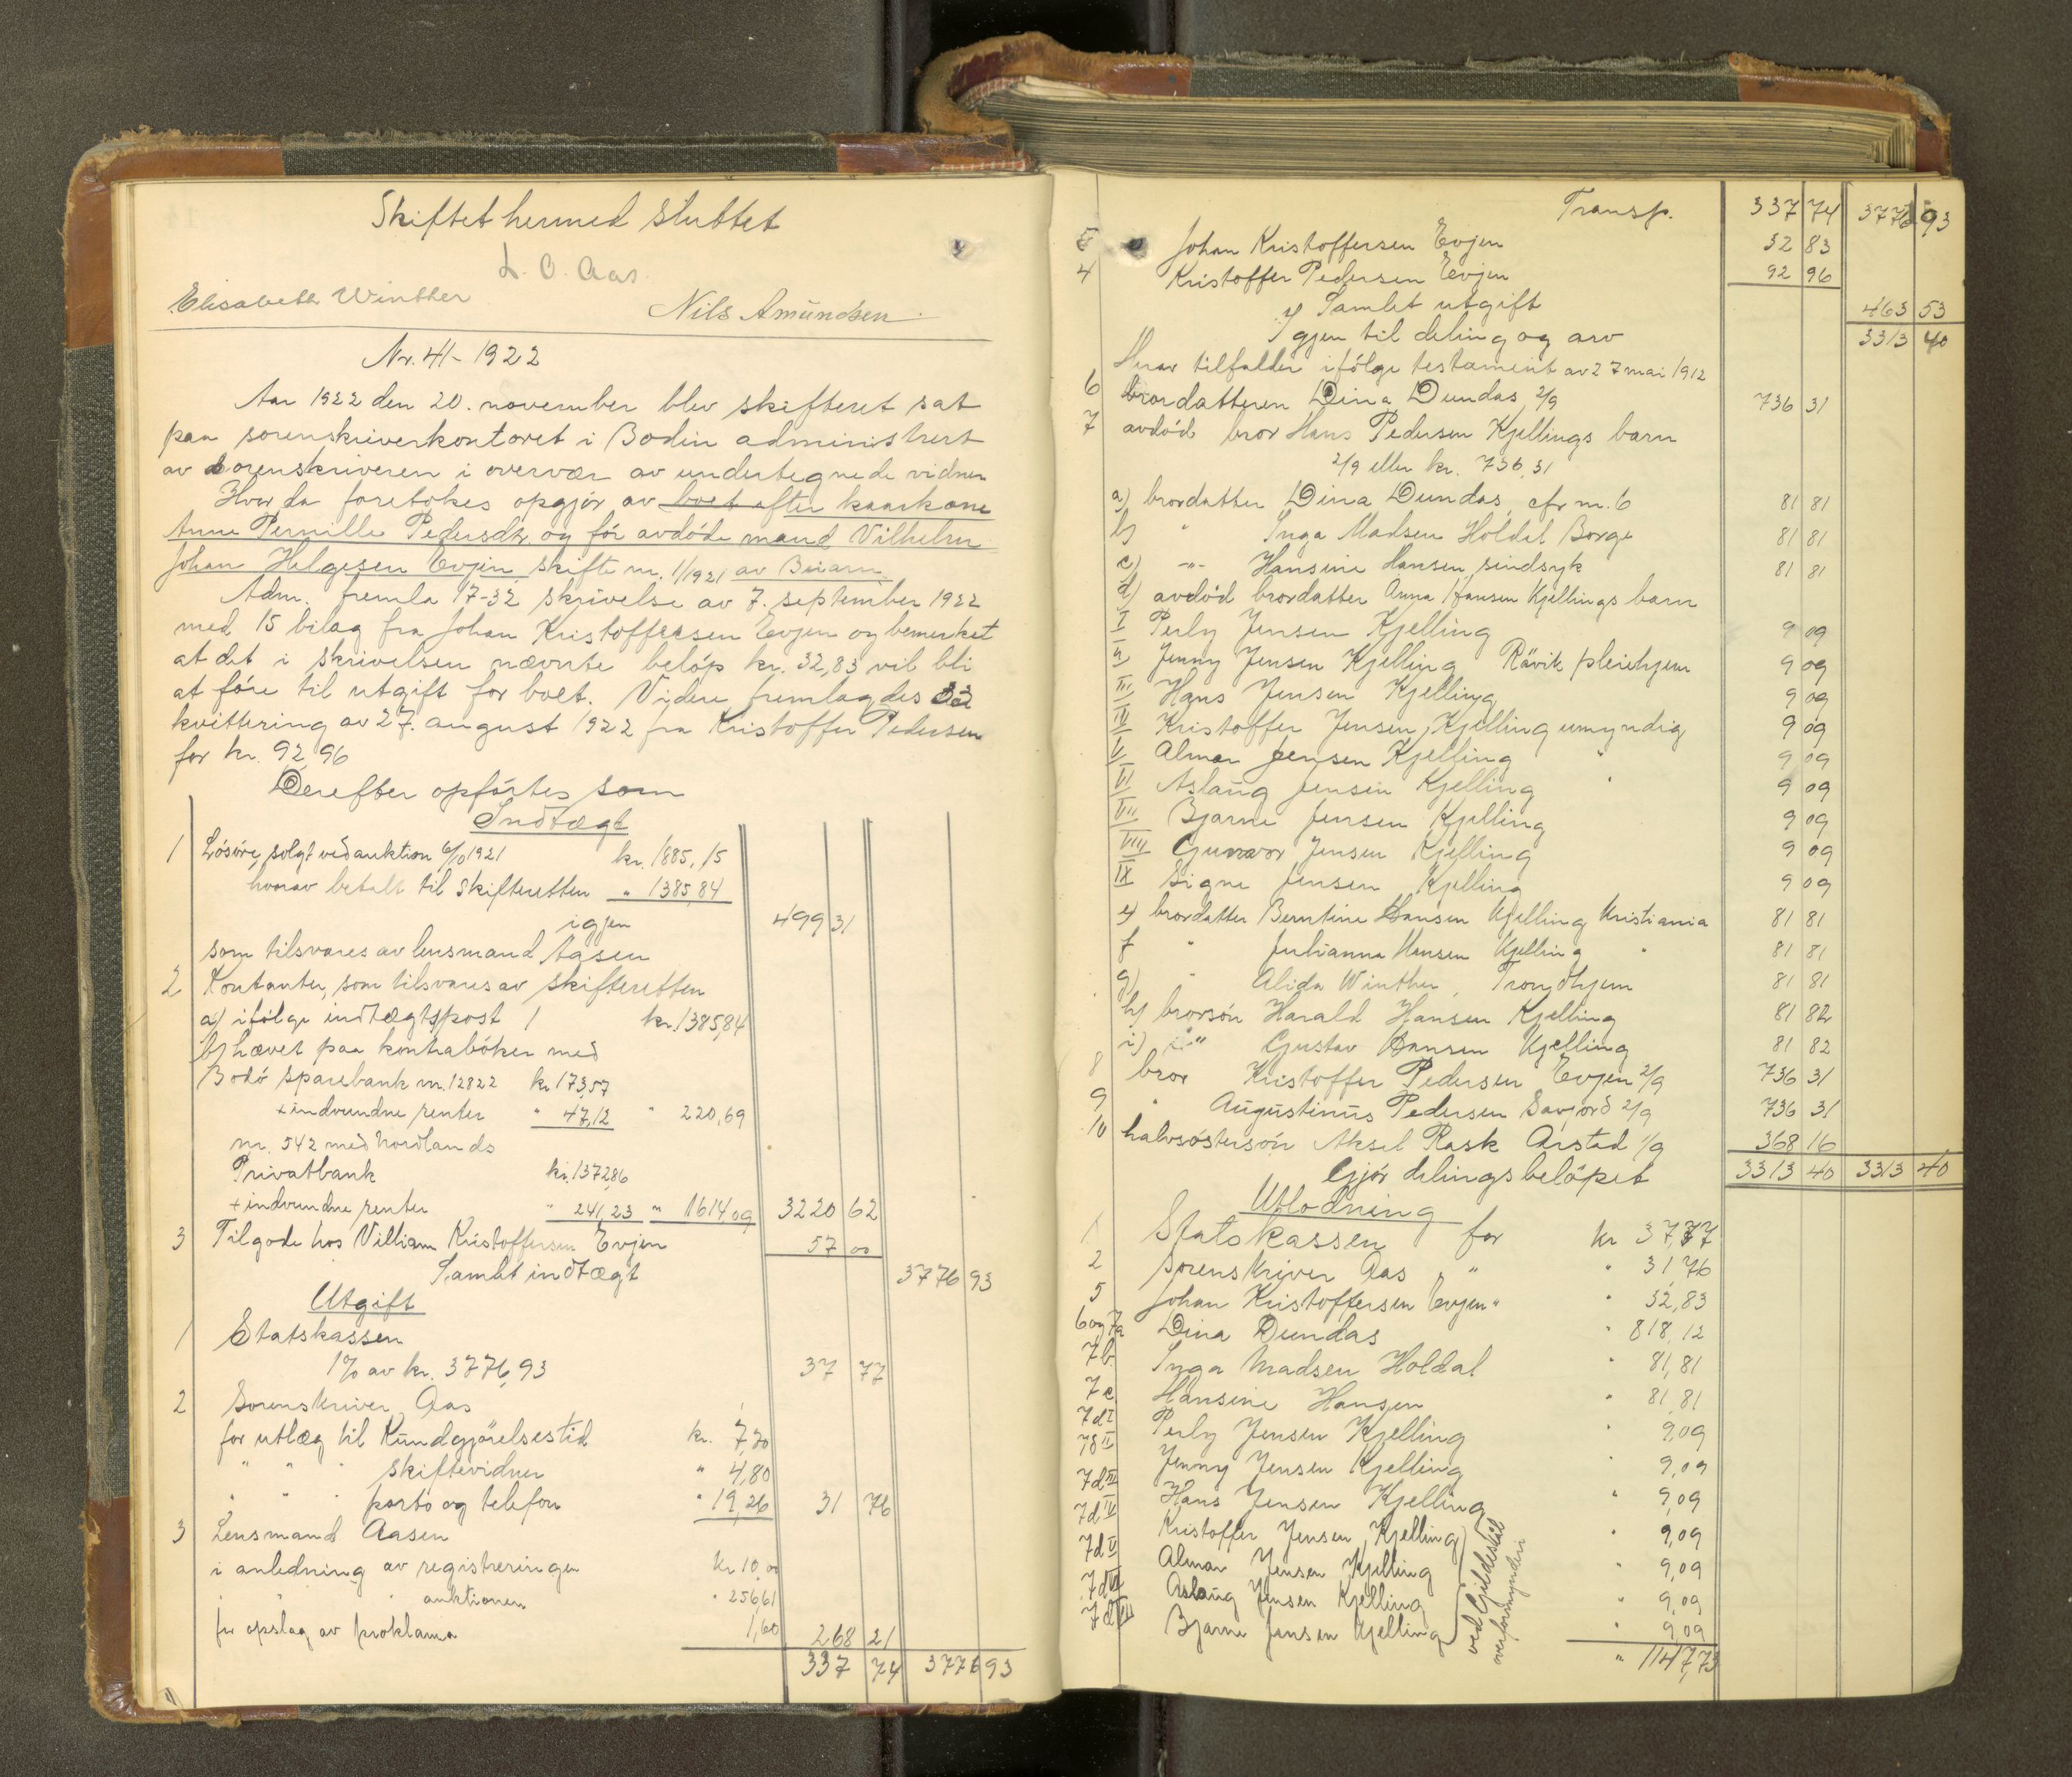 Skiftet hermed sluttet
L. O. Aas.
Elisabeth Winther
Nils Amundsen.
Nr. 41 - 1922
Aar 1922 den 20. november blev skifteret sat
paa sorenskriverkontoret i Bodin administrert
av sorenskriveren i overvær av undertegnede vidner
Hvor da foretokes opgjør av boet efter kaarkone
Anne Pernille Pedersdtr. og før avdøde mand Vilhelm
Johan Helgesen Evjen skifte nr. 1/1921 av Beiarn
Adm. fremla 17-32 skrivelse av 7. september 1922
med 15 bilag fra Johan Kristoffersen Evjen og bemerket
at det i skrivelsen nævnte beløp kr. 32,83 vil bli
at føre til utgift for boet. Videre fremlagdes 33
kvittering av 27. august 1922 fra Kristoffer Pedersen
for kr. 92,96
Derefter opførtes som
Indtægt
1 Løsøre, solgt ved auktion 6/10 1921 kr. 1885,15
hvorav betalt til skifteretten " 1385,84
igjen 499 31
som tilsvares av lensmand Aasen
2 Kontanter, som tilsvares av skifteretten
a) ifølge indtægtspost 1 kr. 1385,84
b) hævet paa kontrabøker med
Bodø sparebank nr. 12822 kr 173,57
+ indvundne renter " 47,12 " 220,69
nr. 542 med Nordlands
Privatbank kr. 1372,86
+ indvundne renter " 241,23 " 1614,09 3220 62
3 Tilgode hos Villiam Kristoffersen Evjen 57 00
Samlet indtægt 3776 93
Utgift
1 Statskassen
1% av kr. 3776,93 37 77
2 Sorenskriver Aas
for utlæg til Kundgjørelsestid kr. 7,70
" " " skiftevidner " 4,80
" " " porto og telefon " 19,26 31 76
3 Lensmand Aasen
i anledning av registreringen kr 10,00
" " " auktionen " 256,61
for opslag av proklama 1,60 268 21
337 74 3776 93
Transp. 337 74 3776 93
5 Johan Kristoffersen Evjen 32 83
4 Kristoffer Pedersen Evjen 92 96
Samlet utgift 463 53
Igjen til deling og arv 3313 40
Herav tilfalder ifølge testament av 27 mai 1912
6 brordatteren Dina Dundas 2/9 736 31
7 avdød bror Hans Pedersen Kjellings barn
2/9 eller kr. 736,31
a) brordatter Dina Dundas, cfr nr. 6 81 81
b) " Inga Madsen Holdal Borge 81 81
c) -"- Hansine Hansen, sindsyk 81 81
d) avdød brordatter Anna Hansen Kjellings barn
I Perly Jensen Kjelling 9 09
II Jenny Jensen Kjelling Råvik pleiehjem 9 09
III Hans Jensen Kjelling 9 09
IV Kristoffer Jensen Kjelling umyndig 9 09
V Almar Jensen Kjelling " 9 09
VI Aslaug Jensen Kjelling " 9 09
VII Bjarne Jensen Kjelling 9 09
VIII Gunvor Jensen Kjelling 9 09
IX Signe Jensen Kjelling 9 09
e) brordatter Berntine Hansen Kjelling Kristiania 81 81
f " Julianna Hansen Kjelling " 81 81
g) " Alida Winther, Trondhjem 81 81
h) brorsøn Harald Hansen Kjelling 81 82
i) " Gustav Hansen Kjelling 81 82
8 bror Kristoffer Pedersen Evjen 2/9 736 31
9 " Augustinus Pedersen Savjord 2/9 736 31
10 halvsøstersøn Aksel Rask Arstad 1/9 368 16
Gjør delingsbeløpet 3313 40 3313 40
Utlodning
1 Statskassen for kr 37,77
2 Sorenskriver Aas " " 31,76
5 Johan Kristoffersen Evjen " " 32,83
6 og 7a Dina Dundas " 818,12
7b Inga Madsen Holdal " 81,81
7c Hansine Hansen " 81,81
7d I Perly Jensen Kjelling " 9,09
7d II Jenny Jensen Kjelling " 9,09
7d III Hans Jensen Kjelling " 9,09
7d IV Kristoffer Jensen Kjelling " 9,09
7d V Almar Jensen Kjelling " 9,09
7d VI Aslaug Jensen Kjelling " 9,09
7d VII Bjarne Jensen Kjelling " 9,09
ved Gildeskål
overformynderi
" 1147,73